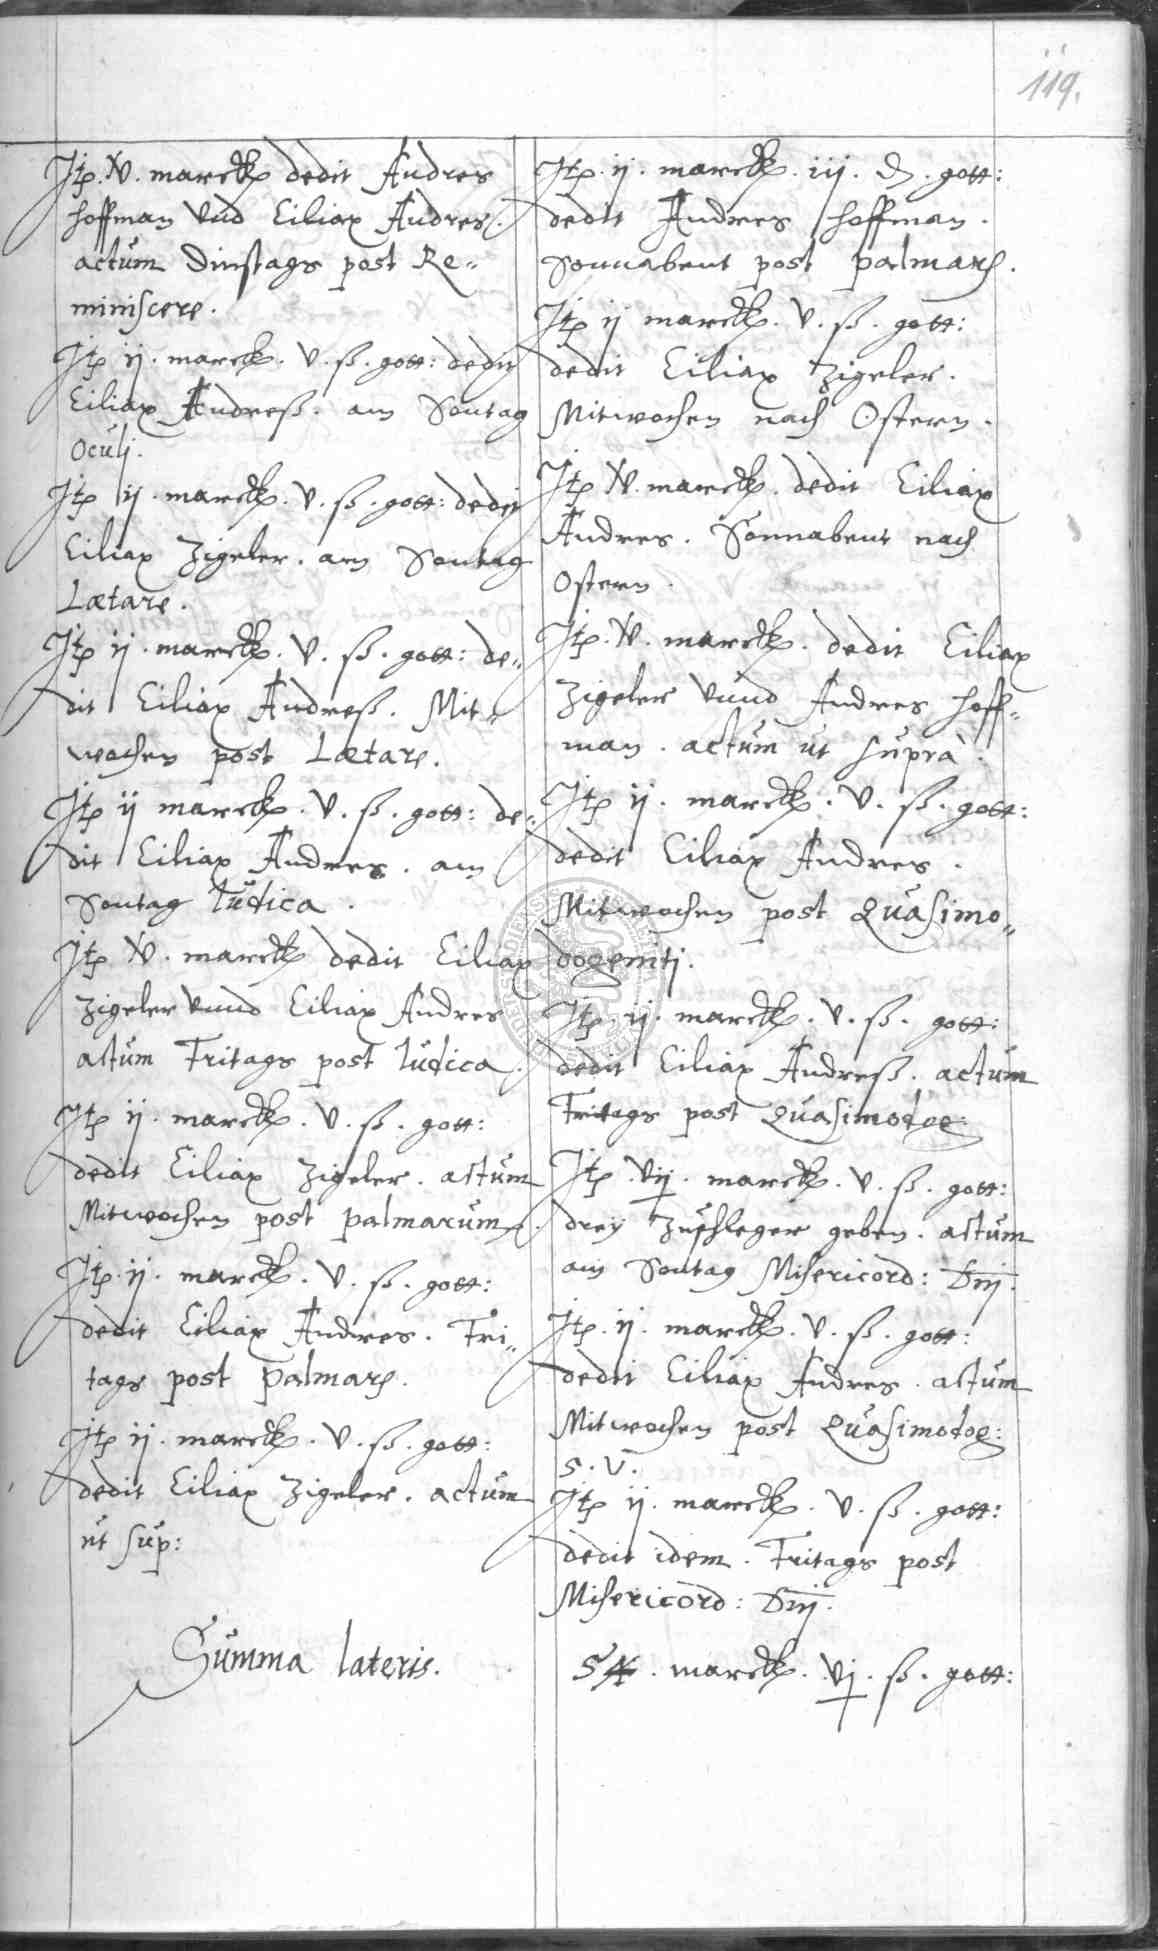 119.
Itp. IV. marckh dedit Andres
hoffman Vnd Ciliax Andres.
actum Dinstags post Re„
miniscere.
Itp ij. marckh. V. ß. gott: dedit
Ciliax Andreß. am Sontag
Oculj.
Itp ij. marckh. V. ß. gott: dedit
Ciliax Zigeler. am Sontag
Lætare.
Itp ij. marckh. V. ß. gott: de„
dit Ciliax Andreß. Mit„
wochen post Lætare.
Itp ij marckh. V. ß. gott: de„
dit Ciliax Andres. am
Sontag Iudica.
Itp IV. marckh dedit Ciliax
Zigeler Vnnd Ciliax Andres
actum Fritags post Iudica.
Itp ij. marckh. V. ß. gott:
dedit Ciliax Zigeler. actum
Mitwochen post palmarum.
Itp. ij. marckh. V. ß. gott:
dedit Ciliax Andres. Fri„
tags post palmarum.
Itp ij. marckh. V. ß. gott:
dedit Ciliax Zigeler. actum
ut sup:
Summa lateris.
Itp. ij. marckh. iij. d. gott:
dedit Andres hoffman.
Sonnabent post palmarum.
Itp ij marckh. V. ß. gott:
dedit Ciliax Zigeler.
Mitwochen nach Ostern.
Itp IV. marckh. dedit Ciliax
Andres. Sonnabent nach
Ostern.
Itp. IV. marckh. dedit Ciliax
Zigeler Vnnd Andres hoff„
man. actum ut suprà.
Itp ij. marckh. V. ß. gott:
dedit Ciliax Andres.
Mitwochen post Quasimo„
dogenitj.
Itp. ij. marckh. V. ß. gott:
dedit Ciliax Andreß. actum
Fritags post Quasimodog:
Itp. Vij. marckh. V. ß. gott:
drey Zuschleger geben. actum
am Sontag Misericord: Dnj.
Itp. ij. marckh. V. ß. gott:
dedit Ciliax Andres. actum
Mitwochen post Quasimodog:
S. V.
Itp ij. marckh. V. ß. gott:
dedit idem. Fritags post
Misericord: Dnj.
54. marckh. Vj. ß. gott: